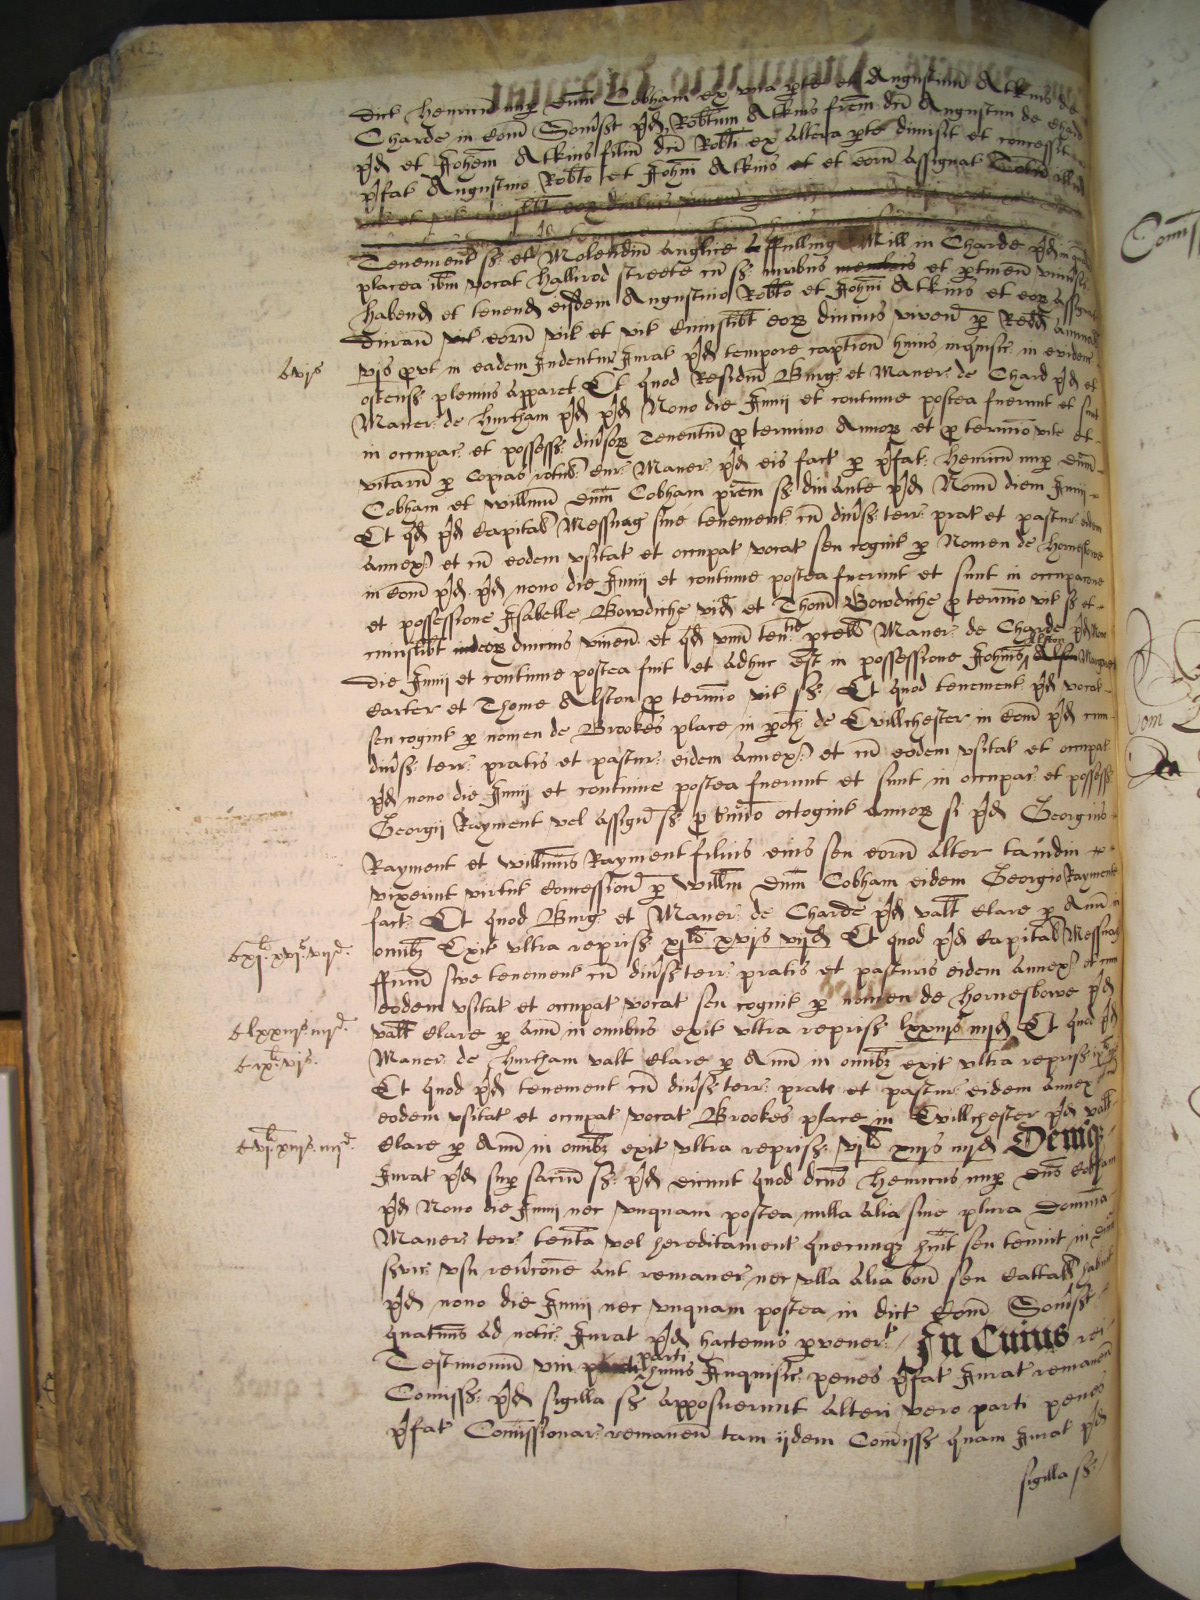 dict Henricũ nup dñm Cobham ex vna pte et Augustinũ Atkins de
Charde in Com̃ Som̃sꝫt p̱d Rob̃tum Atkins frẽm dc̃i Augustini de Chard
p̱d et Joh̃em Atkins filiũ dc̃i Rob̃ti ex altera pte dimisit et concessit
p̱fat Augustino Rob̃to et Joh̃ni Atkins et eorũ assignat
Tenement et Molendiñ anglice a ffulling Mill in Charde p̱d in
placea ib̃m vocat Hallirod streete cũ omnibus et ptineñ vniusis
habend et tenend eisdem Augustino Rob̃to et Joh̃ni Atkins et eoꝝ assignat
Durañ vit eorũ vit et vit cuiuslib̃t eoꝝ diucius viveñ p Redd annual
vjs put in eadem Indentur Jurat p̱d tempore captioñ huius inquisic in evidenc
ostens plenius apparet Et quod Residiũ Burg et Maner de Chard p̱d et
Maner de Hurtham p̱d p̱d Nono die Junij et continue postea fuerunt et sunt
in occupac et possess diũsoꝝ Tenentiũ p termino Annoꝝ et p termio vite et
vitarũ p Copias rotuł Cur Maner p̱d eis fact p p̱fat Henricũ nup dñm
Cobham et Willimũ Dñm Cobham prẽm diu ante p̱d Nonũ diem Junij
Et qd p̱d Capitał Messuag siue tenement cũ diũs terr prat et pastur eidem
annex et cũ eodem vsitat et occupat vocat seu cognit p Nomen de Hornesbowe
in Com̃ p̱d p̱d nono die Junij et continue postea fuerunt et sunt in occupac̃one
et possessione Isabelle Bowdiche vid et Thom̃ Bowdiche p termio vit et
cuiuslib̃t eoꝝ diucius viueñ et qd vnũ teñt pcell Maner de Charde p̱d Nono
die Junij et continue postea fuit et adhuc est in possessione Joh̃nis Alston Margaret
Carter et Thome Alston p termio vit Et quod tenement p̱d vocat
seu cognit p nomen de Brookes place in poch de Evillchester in Com̃ p̱d cum
diũs terr pratis et pastur eidem annex et cũ eodem vsitat et occupat
p̱d nono die Junij et continue postea fuerunt et sunt in occupac et possess
Georgij Rayment vel assigñ p t̃mio octogint annoꝝ si p̱d Georgius
Rayment et Willimus Rayment filius eius seu eorũ alter tamdiu
vixerint virtut Concessioñ p Willm Dñm Cobham eidem Georgio Rayment
fact Et quod Burg et Maner de Charde p̱d valt Clare p Anũ in
omibꝫ Exit vltra repriss xjł xvjs vijd Et quod p̱d Capitał Messuag
ffirm siue tenement cũ diũs terr pratis et pasturis eidem annex et cum
eodem vsitat et occupat vocat seu cognit p nomen de Hornesbowe p̱d
valt Clare p anũ in omibus exit vltra repriss lxxiijs iiijd Et quod p̱d
Maner de Hurtham valt Clare p Anũ in omibꝫ exit vltra repriss
Et quod p̱d tenement cũ diũs terr prat et pastur eidem annex
eodem vsitat et occupat vocat Brookes place in Evillchester p̱d valt
Clare p Anũ in omibꝫ exit vltra repriss vjł xiijs iiijd Deniqꝫ
Jurat p̱d sup sacrũ p̱d dicunt quod dc̃us Henricus nup Dñs Cobham
p̱d Nono die Junij nec vnquam postea nulla alia siue plura Dominia
Maner terr teñta vel hereditament quecunqꝫ huit seu tenuit in Dñico
servic vsu revc̃one aut remaner nec vlla alia boñ seu Catalł habuit
p̱d nono die Junij nec vnquam postea in dict Com̃ Som̃sꝫt
quatinus ad notic Jurat p̱d hactenus pervener In Cuius rei
Testimoniũ vni parti huius Inquisic penes p̱fat Jurat remaneñ
Com̃iss p̱d sigilla apposuerunt alteri vero parti penes
p̱fat Com̃issionar remaneñ tam ijdem Com̃iss quam Jurat p̱d
sigilla
vjs
xjł xvjs vijd
lxxiijs iiijd
ixł vjs
vjł xiijs iiijd